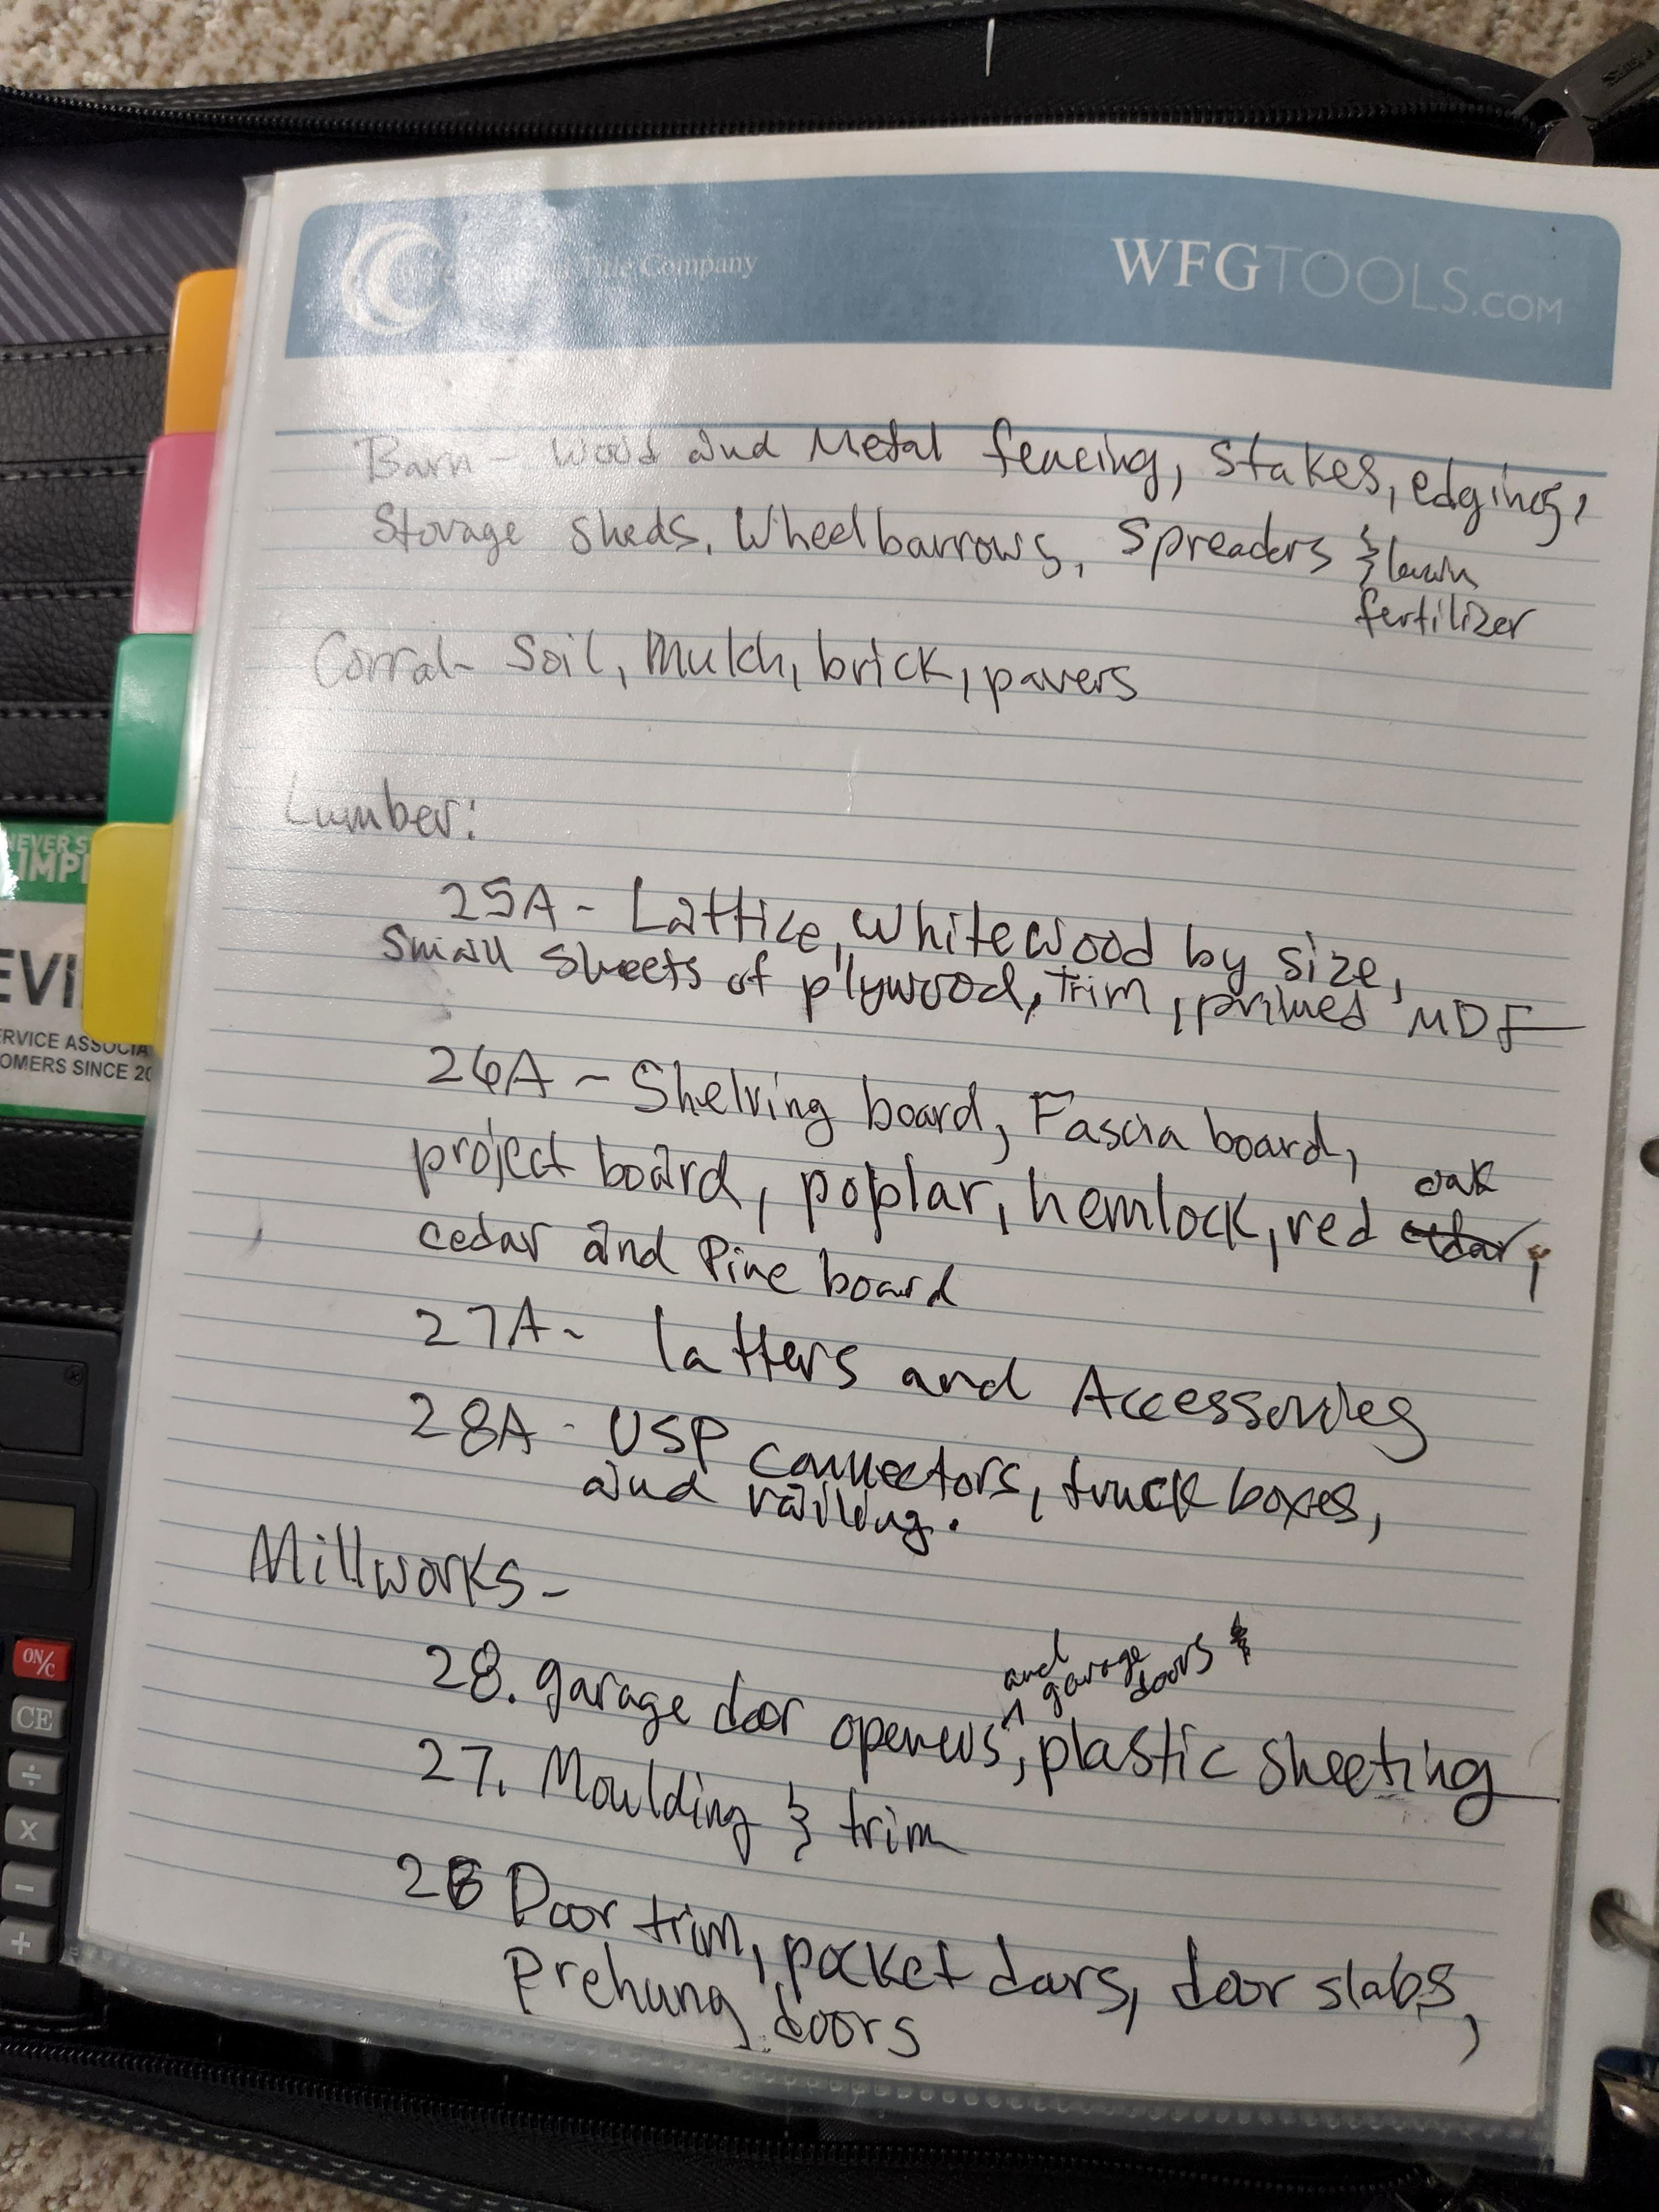 Title Company
WFGTOOLS.COM
Barn - Wood and Metal fencing, Stakes, edging,
Storage Sheds, Wheelbarrows, Spreaders & lawn
fertilizer
Corral - Soil, Mulch, brick, pavers
Lumber:
25A - Lattice, Whitewood by size,
Small Sheets of plywood, trim, primed MDF
26A - Shelving board, Fascia board,
project board, poplar, hemlock, red oak,
cedar and Pine board
27A - latters and Accessories
28A - USP connectors, truck boxes,
and railing.
Millworks -
28. garage door openers and garage doors, plastic sheeting
27. Moulding & trim
26 Door trim, pocket doors, door slabs,
Prehung doors
NEVER S
IMP
EVI
ERVICE ASSOCIA
OMERS SINCE 20
ON/C
CE
÷
X
−
+